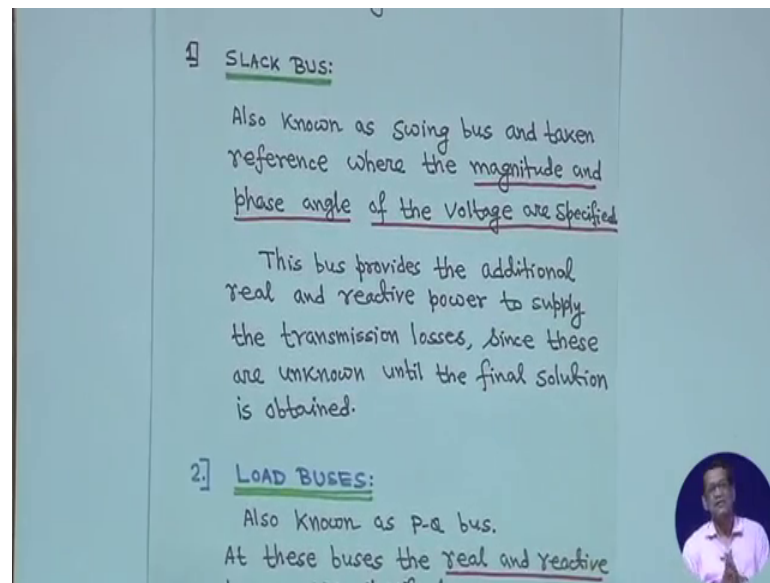 1] SLACK BUS:
Also known as swing bus and taken
reference where the magnitude and
phase angle of the voltage are specified
This bus provides the additional
real and reactive power to supply
the transmission losses, since these
are unknown until the final solution
is obtained.
2.] LOAD BUSES:
Also known as P-Q bus.
At these buses the real and reactive